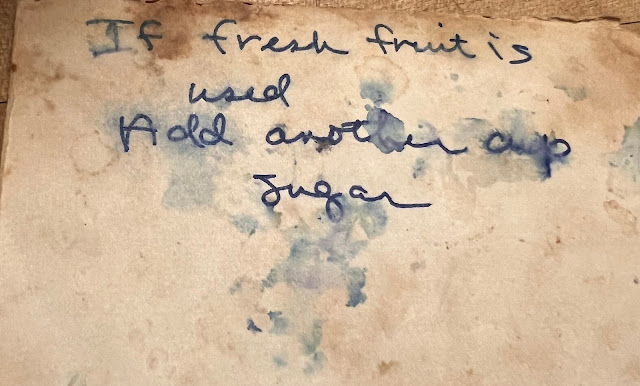 If fresh fruit is
used
Add another cup
sugar